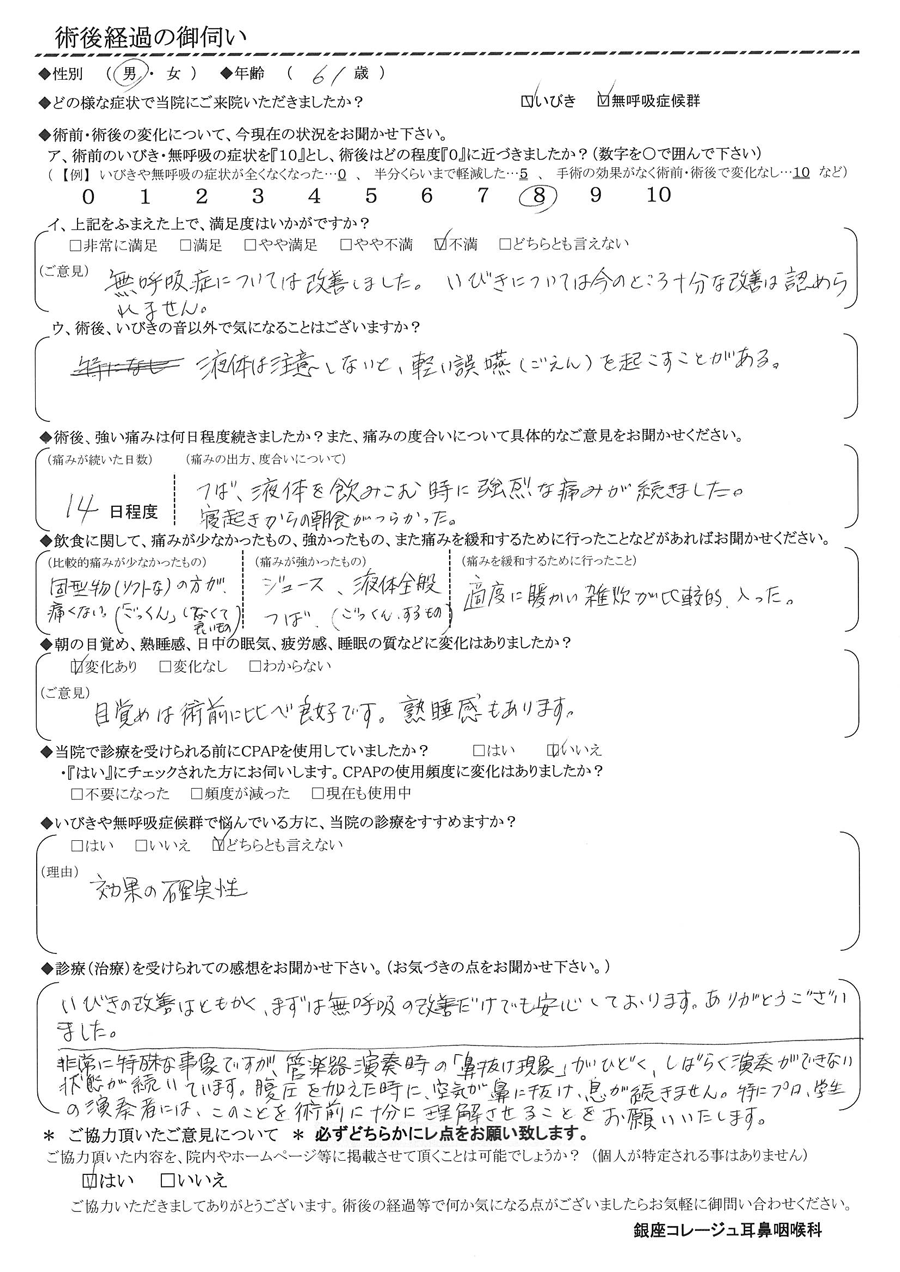 術後経過の御伺い
◆性別 （ 男 ・ 女 ） ◆年齢 （ 61 歳 ）
◆どの様な症状で当院にご来院いただきましたか？ ☑いびき ☑無呼吸症候群
◆術前・術後の変化について、今現在の状況をお聞かせ下さい。
ア、術前のいびき・無呼吸の症状を『10』とし、術後はどの程度『0』に近づきましたか？（数字を〇で囲んで下さい）
（ 【例】 いびきや無呼吸の症状が全くなくなった…0 、 半分くらいまで軽減した…5 、 手術の効果がなく術前・術後で変化なし…10 など）
0 1 2 3 4 5 6 7 8 9 10
イ、上記をふまえた上で、満足度はいかがですか？
□非常に満足 □満足 □やや満足 □やや不満 ☑不満 □どちらとも言えない
（ご意見） 無呼吸症については改善しました。 いびきについては今のところ十分な改善は認めら
れません。
ウ、術後、いびきの音以外で気になることはございますか？
特になし 液体は注意しないと、軽い誤嚥（ごえん）を起こすことがある。
◆術後、強い痛みは何日程度続きましたか？また、痛みの度合いについて具体的なご意見をお聞かせください。
（痛みが続いた日数） （痛みの出方、度合いについて）
14 日程度 つば、液体を飲みこむ時に強烈な痛みが続きました。
寝起きからの朝食がつらかった。
◆飲食に関して、痛みが少なかったもの、強かったもの、また痛みを緩和するために行ったことなどがあればお聞かせください。
（比較的痛みが少なかったもの） （痛みが強かったもの） （痛みを緩和するために行ったこと）
固型物（ソフトな）の方が、 ジュース、液体全般 適度に暖かい雑炊が比較的、入った。
痛くない。（「ごっくん」しなくて良いもの） つば．（ごっくん、するもの）
◆朝の目覚め、熟睡感、日中の眠気、疲労感、睡眠の質などに変化はありましたか？
☑変化あり □変化なし □わからない
（ご意見）
目覚めは術前に比べ良好です。熟睡感もあります。
◆当院で診療を受けられる前にCPAPを使用していましたか？ □はい ☑いいえ
・『はい』にチェックされた方にお伺いします。CPAPの使用頻度に変化はありましたか？
□不要になった □頻度が減った □現在も使用中
◆いびきや無呼吸症候群で悩んでいる方に、当院の診療をすすめますか？
□はい □いいえ ☑どちらとも言えない
（理由） 効果の確実性
◆診療（治療）を受けられての感想をお聞かせ下さい。（お気づきの点をお聞かせ下さい。）
いびきの改善はともかく、まずは無呼吸の改善だけでも安心しております。ありがとうござい
ました。
非常に特殊な事象ですが、管楽器演奏時の「鼻抜け現象」がひどく、しばらく演奏ができない
状態が続いています。腹圧を加えた時に、空気が鼻に抜け、息が続きません。特にプロ、学生
の演奏者には、このことを術前に十分に理解させることをお願いいたします。
＊ ご協力頂いたご意見について ＊ 必ずどちらかにレ点をお願い致します。
ご協力頂いた内容を、院内やホームページ等に掲載させて頂くことは可能でしょうか？ （個人が特定される事はありません）
☑はい □いいえ
ご協力いただきましてありがとうございます。術後の経過等で何か気になる点がございましたらお気軽に御問い合わせください。
銀座コレージュ耳鼻咽喉科